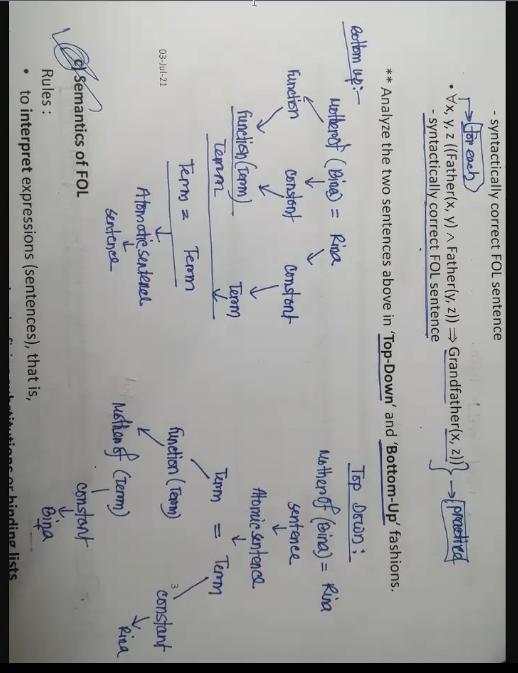 - syntactically correct FOL sentence
for each
• ∀x, y, z ((Father(x, y) ∧ Father(y, z)) ⇒ Grandfather(x, z))
- syntactically correct FOL sentence
** Analyze the two sentences above in 'Top-Down' and 'Bottom-Up' fashions.
Bottom up:-
Mother of (Bina) = Rina
Function constant constant
function(Term) Term
Term
Term = Term
Atomic sentence
sentence
Top Down:
Mother of (Bina) = Rina
sentence
Atomic sentence
Term = Term
function (Term) constant
Mother of (Term) Rina
constant
Bina
03-Jul-21
3
c) Semantics of FOL
Rules :
• to interpret expressions (sentences), that is,
substitutions or binding lists